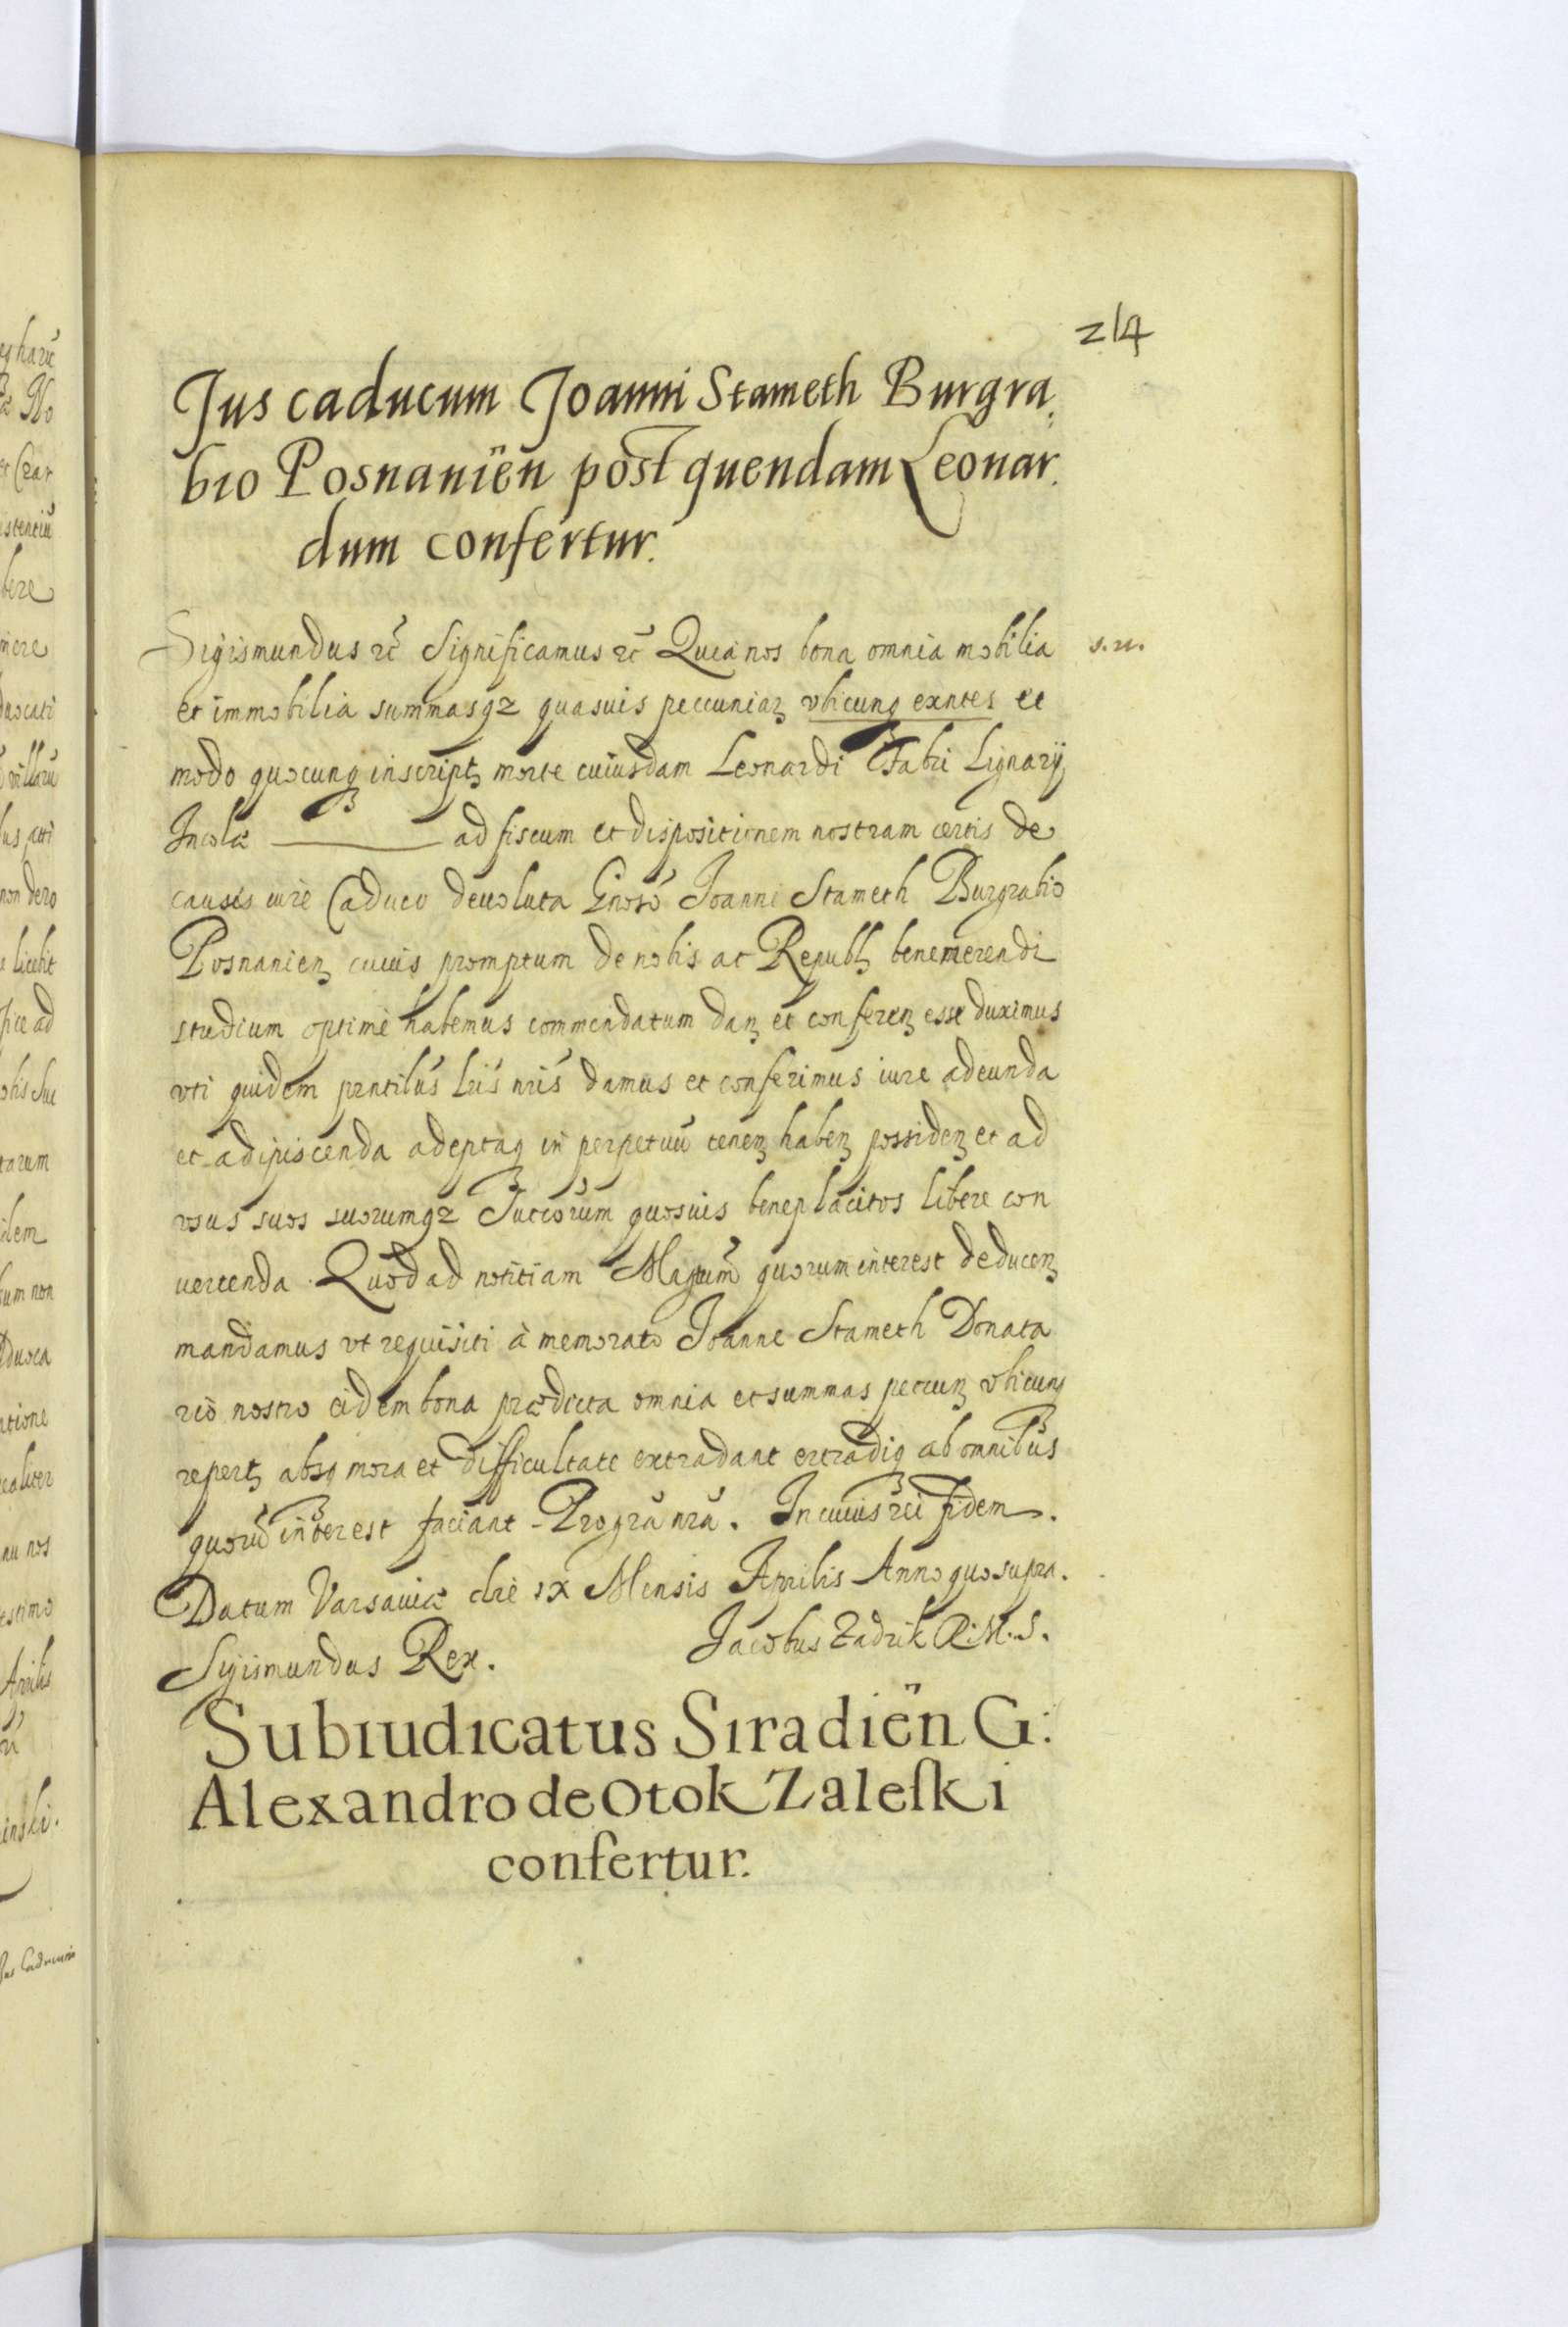 214
Jus caducum Joanni Stameth Burgra
bio Posnanien̈ post quendam Leonar
dum confertur.
Sigismundus etc̃ Significamus etc̃ Quia nos bona omnia mobilia
s. n.
et immobilia summasqz quasuis peccuniaꝝ vbicunq exntes et
modo quocunq inscriptꝫ morte cuiusdam Leonardi Fabri Lignarij
Incolæ ad fiscum et dispositionem nostram certis de
causis iure Caduco deuoluta Gnoso Joanni Stameth Burgrabio
Posnanienꝫ cuius promptum de nobis ac Republꝫ benemerendi
studium optimè habemus commendatum danꝫ et conferenꝫ esse duximus
vti quidem pntibus lris nris damus et conferimus iure adeunda
et adipiscenda adeptaq in perpetuũ tenenꝫ habenꝫ possidenꝫ et ad
vsus suos suorumqz Succorum quosuis beneplacitos libere con
uertenda. Quod ad notitiam Magtum̃ quorum interest deducenꝫ
mandamus vt requisiti à memorato Joanne Stameth Donata
rio nostro eidem bona prædicta omnia et summas peccunꝫ vbicunq
repertꝫ absq mora et difficultate extradant extradiq ab omnibus
quorũ interest faciant Pro grã nrã. In cuius rei fidem.
Datum Varsauiæ die IX Mensis Aprilis Anno quo supra.
Sigismundus Rex. Jacobus Zadzik R. M. S.
Subiudicatus Siradien̈ G:
Alexandro de Otok Zaleſki
confertur.